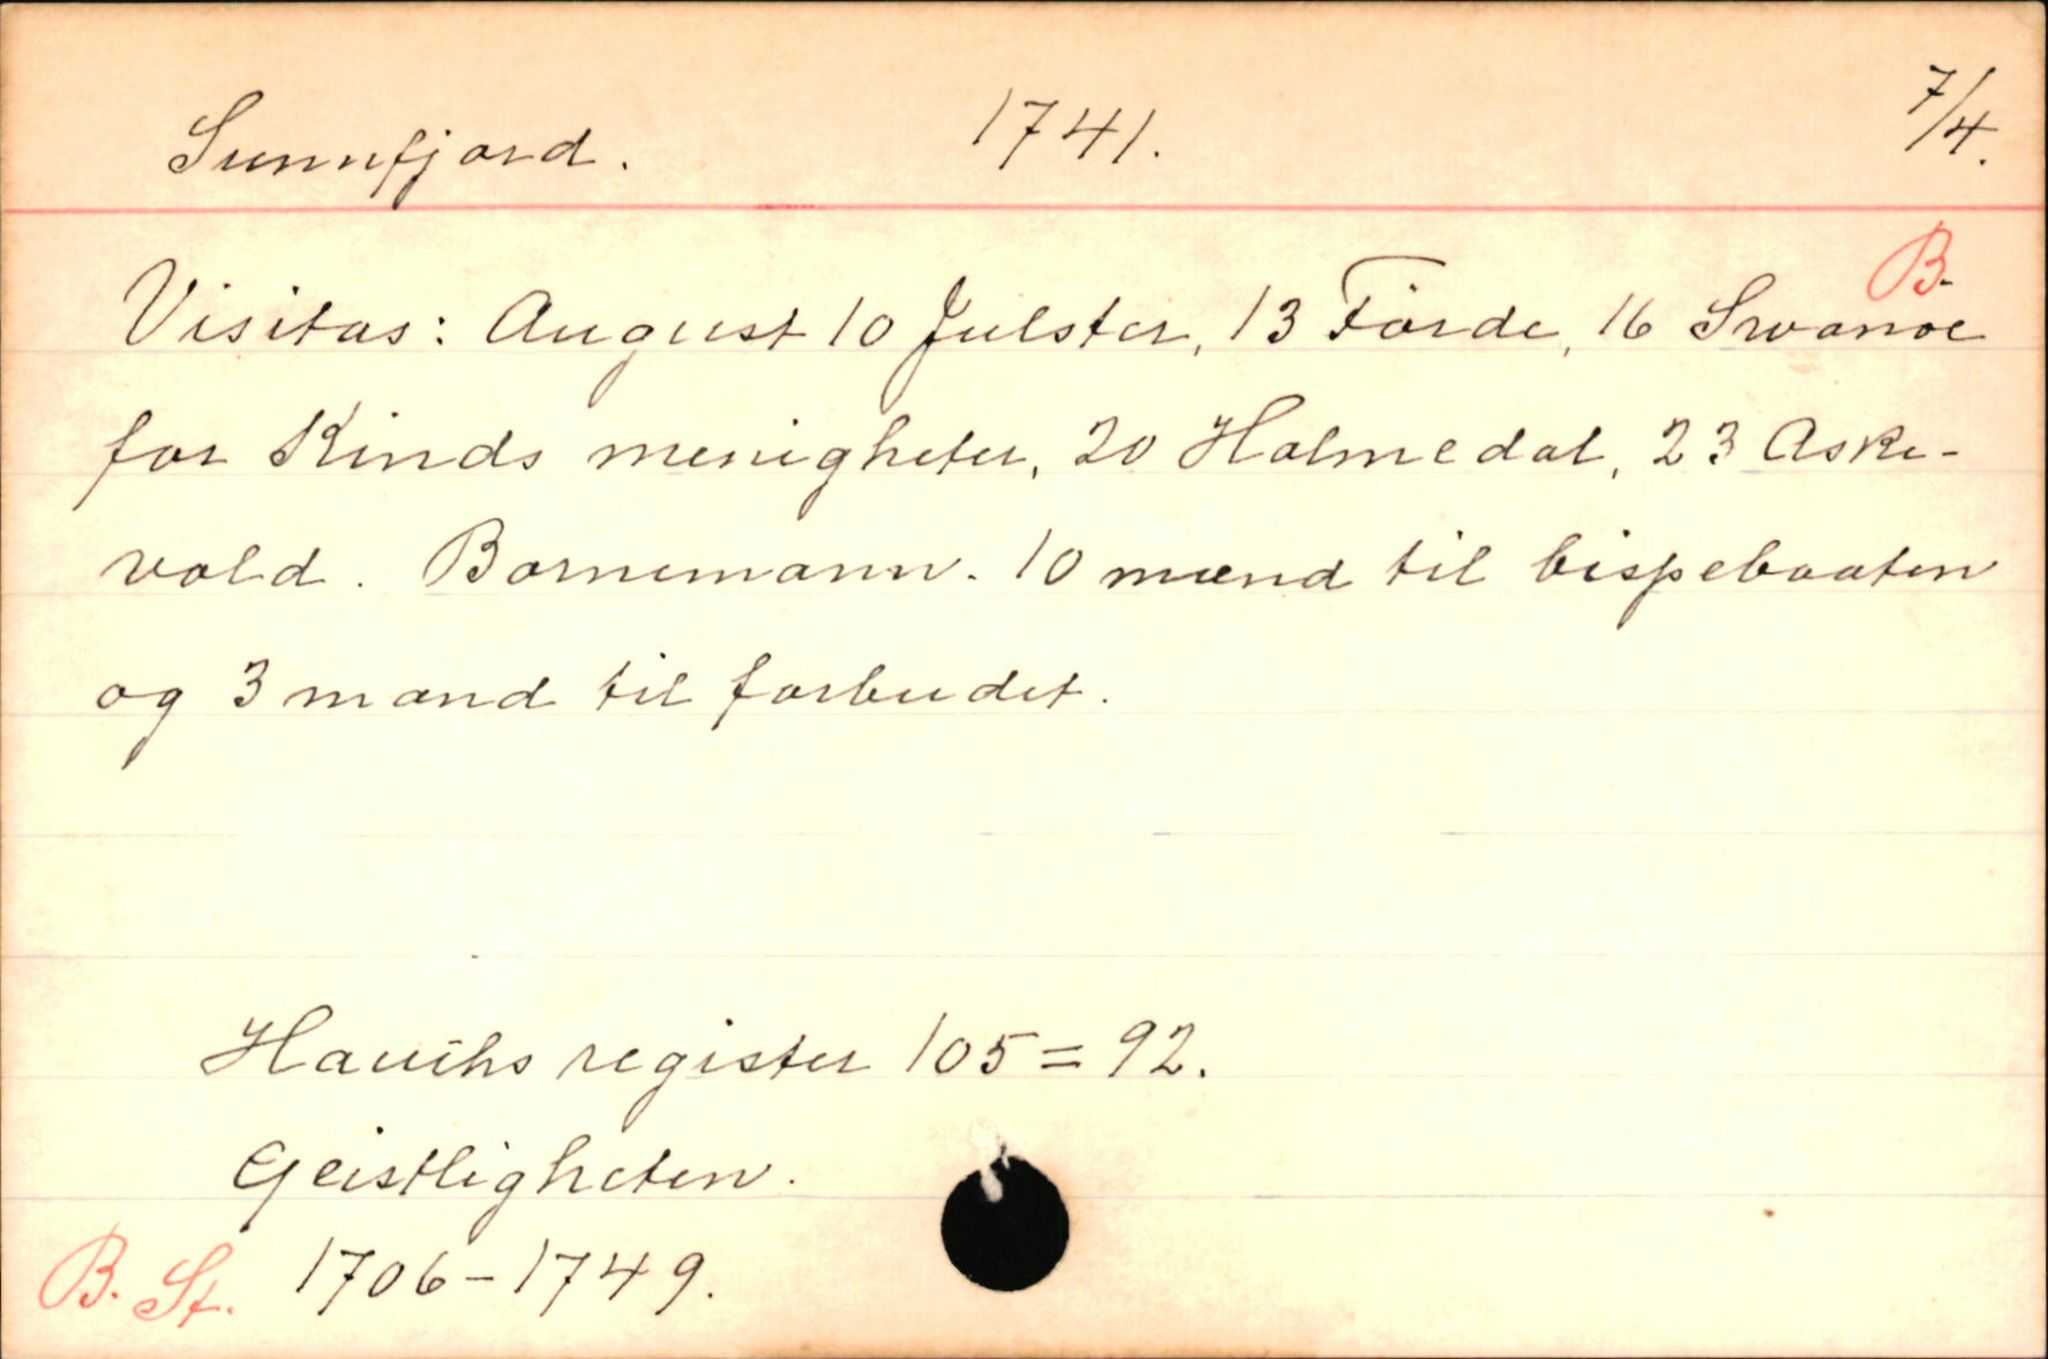 Sunnfjord. 1741. 7/4.
B.
Visitas: August 10 Julster, 13 Förde, 16 Svanoe
for Kinds menigheter, 20 Holmedal, 23 Aske-
vold. Bornemann. 10 mænd til bispebaaten
og 3 mand til forbudet.
Hauchs register 105 = 92.
Geistligheten.
B. St. 1706-1749.